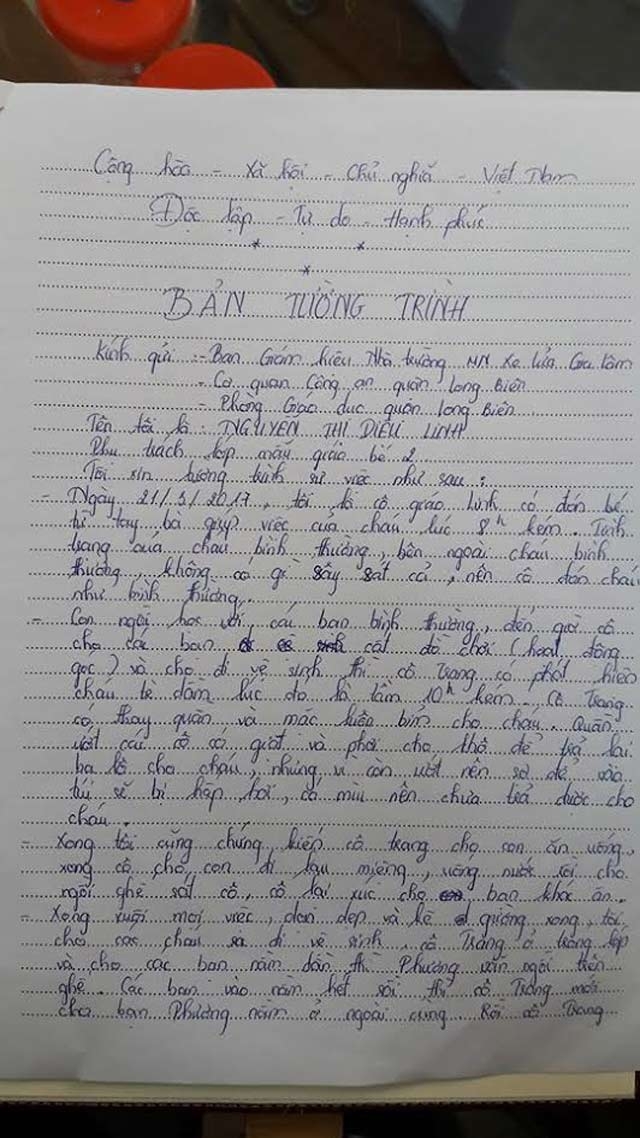 Cộng hòa - Xã hội - Chủ nghĩa - Việt Nam
Độc lập - Tự do - Hạnh phúc
* *
*
BẢN TƯỜNG TRÌNH
Kính gửi: - Ban Giám hiệu Nhà trường MN Xe lửa Gia Lâm
- Cơ quan Công an quận Long Biên
- Phòng Giáo dục quận Long Biên
Tên tôi là: NGUYỄN THỊ DIỆU LINH
Phụ trách lớp mẫu giáo bé 2
Tôi xin tường trình sự việc như sau:
- Ngày 21/3/2017, tôi là cô giáo Linh có đón bé
từ tay bà giúp việc của cháu lúc 8h kém. Tình
trạng của cháu bình thường, bên ngoài cháu bình
thường, không có gì sây sát cả, nên cô đón cháu
như bình thường.
- Con ngồi học với các bạn bình thường, đến giờ cô
cho các bạn cất đồ chơi (hoạt động
góc) và cho đi vệ sinh thì cô Trang có phát hiện
cháu tè dầm lúc đó là tầm 10h kém. Cô Trang
có thay quần và mặc luôn bỉm cho cháu. Quần
ướt các cô có giặt và phơi cho khô để trả lại
ba lô cho cháu, nhưng vì còn ướt nên sợ để vào
túi sẽ bị hấp hơi, có mùi nên chưa trả được cho
cháu.
- Xong tôi cũng chứng kiến cô trang cho con ăn uống,
xong cô cho con đi lau miệng, uống nước rồi cho
ngồi ghế sát cô, cô lại xúc cho bạn khác ăn.
- Xong xuôi mọi việc, dọn dẹp và kê giường xong, tôi
cho các cháu đi vệ sinh, cô Trang ở trong lớp
và cho các bạn nằm dần thì Phương vẫn ngồi trên
ghế. Các bạn vào nằm hết rồi thì cô Trang mới
cho bạn Phương nằm ở ngoài cùng. Rồi cô Trang